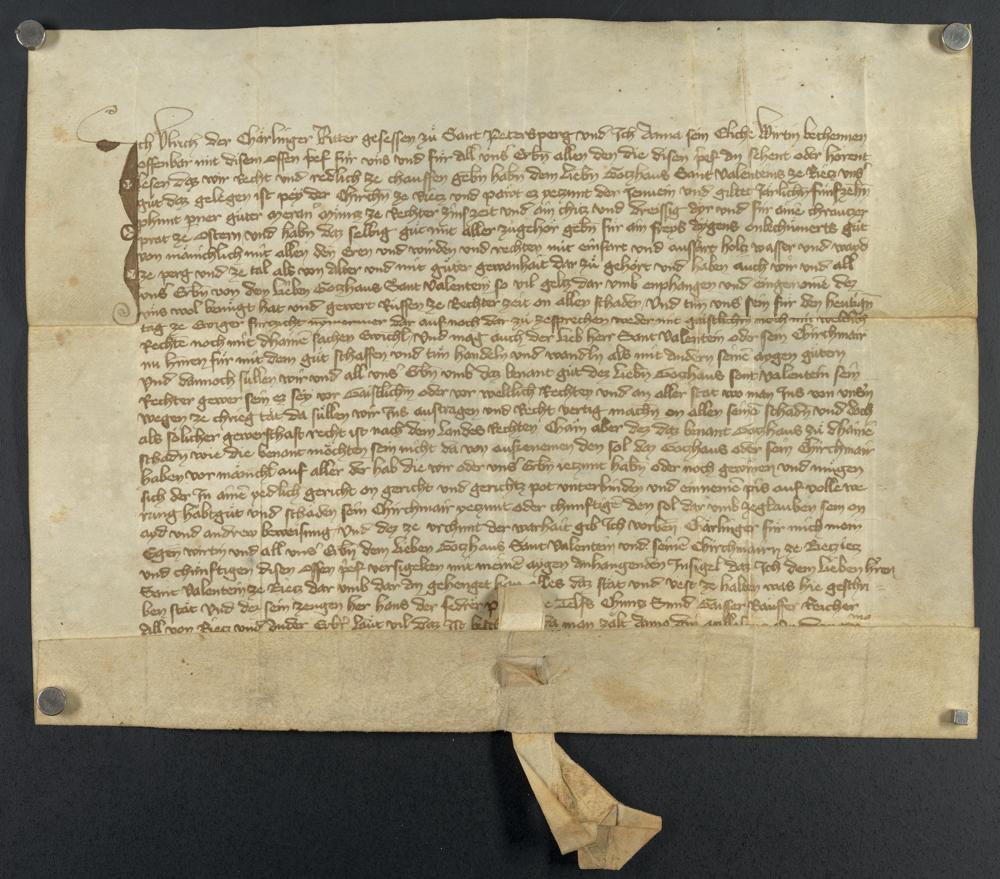 Ich Ulrich der Chärlinger Ritter gesessen zu Sant Petersperg und Ich Anna sein Eliche Wirtin bechennen
offenbar mit disem offen prief für uns und für all uns Erbn allen den die disen prief an sehent oder hörent
lesen daz wir Recht und redlich ze chauffen gebn habn dem liebn Gotzhaus Sant Valenteins ze Rietz uns
gut daz gelegen ist pey der Chirchn ze Rietz und pawt es yezunt der und giltet Järlichn fünfzehn
phunt perner guter Meran Münitz ze Rechter zinszeit und ain chitz und dreissig ayr und für aine
prat ze Ostern und habn daz selbig gut mit aller zugehör gebn für ain freys aygens unbechümerts gut
von mänichlich mit allen den Eren und wirden und rechten mit einfart und ausfart holtz wasser und wayd
ze perg und ze tal als von alter und mit guter gewonhait dar zu gehört und haben auch wir und all
uns Erbn von dem lieben Gotzhaus Sant Valentein so vil geltz dar umb enphangen und eingenomē dez
uns wol benügt hat und gewert Rissen ze Rechter zeit on allen schaden Und tun uns sein für den heutign
tag ze Ewiger fürzicht nymermer dar auf noch dar zu zesprechen weder mit gaistlichn noch mit weltlich
Rechte noch mit dhaine sachen Ewichl Und mag auch der lieb herr Sant Valentein oder sein Chirchmair
nu hinen für mit dem gut schaffen und tun handeln und wandln als mit andern seinē aygen gütern
Und dannoch süllen wir und all uns Erbn umb daz benant gut dez liebn Gotzhaus sant Valentein sein
Rechter gewer sein ez sey vor Gaistlichn oder vor weltlich Rechten und an aller stat wo man Ins von unsn
wegen ze chrieg tät da süllen wir Ins austragen und Recht vertig machn on allen seinē schadn und daz
als sölicher gewerschaft recht ist nach dem landes Rechten Chäm aber dez daz benant Gotzhaus zu dhainē
schadn wie die benant möchten sein nicht da von auszenemen den sol daz Gotzhaus oder sein Chirchmair
haben vor mänichl auf aller der hab die wir oder uns Erbn yezunt habn oder noch gewinen und mügen
sich der In ainē yedlich gericht on gericht und gerichtz pot unterbinden und einnemē pis auf volle we-
rung habtgut und schaden sein Chirchmair yezunt oder chünftigē den sol dar umb zeglauben sein on
ayd und andrew beweisung Und des ze urchünt der warhait gib Ich vorben Chärlinger für mich mein
Egen wirtin und all uns Erbn dem lieben Gotzhaus Sant Valentein und seinē Chirchmairn ze Rietz iez
und chünftigen disen offen prief versigelten mit meinē aygen anhangenden Insigel daz Ich dem lieben hren
Sant Valentein ze Rietz dar umb dar an gehenget alles daz stät und vest ze halten was hie geschri-
ben stät Und dez sein zeugen her hans der fedrer Telfs Chuntz Smid Gasser Reicher
all von Rietz und ander Erbr läut vil Daz man zalt Anno